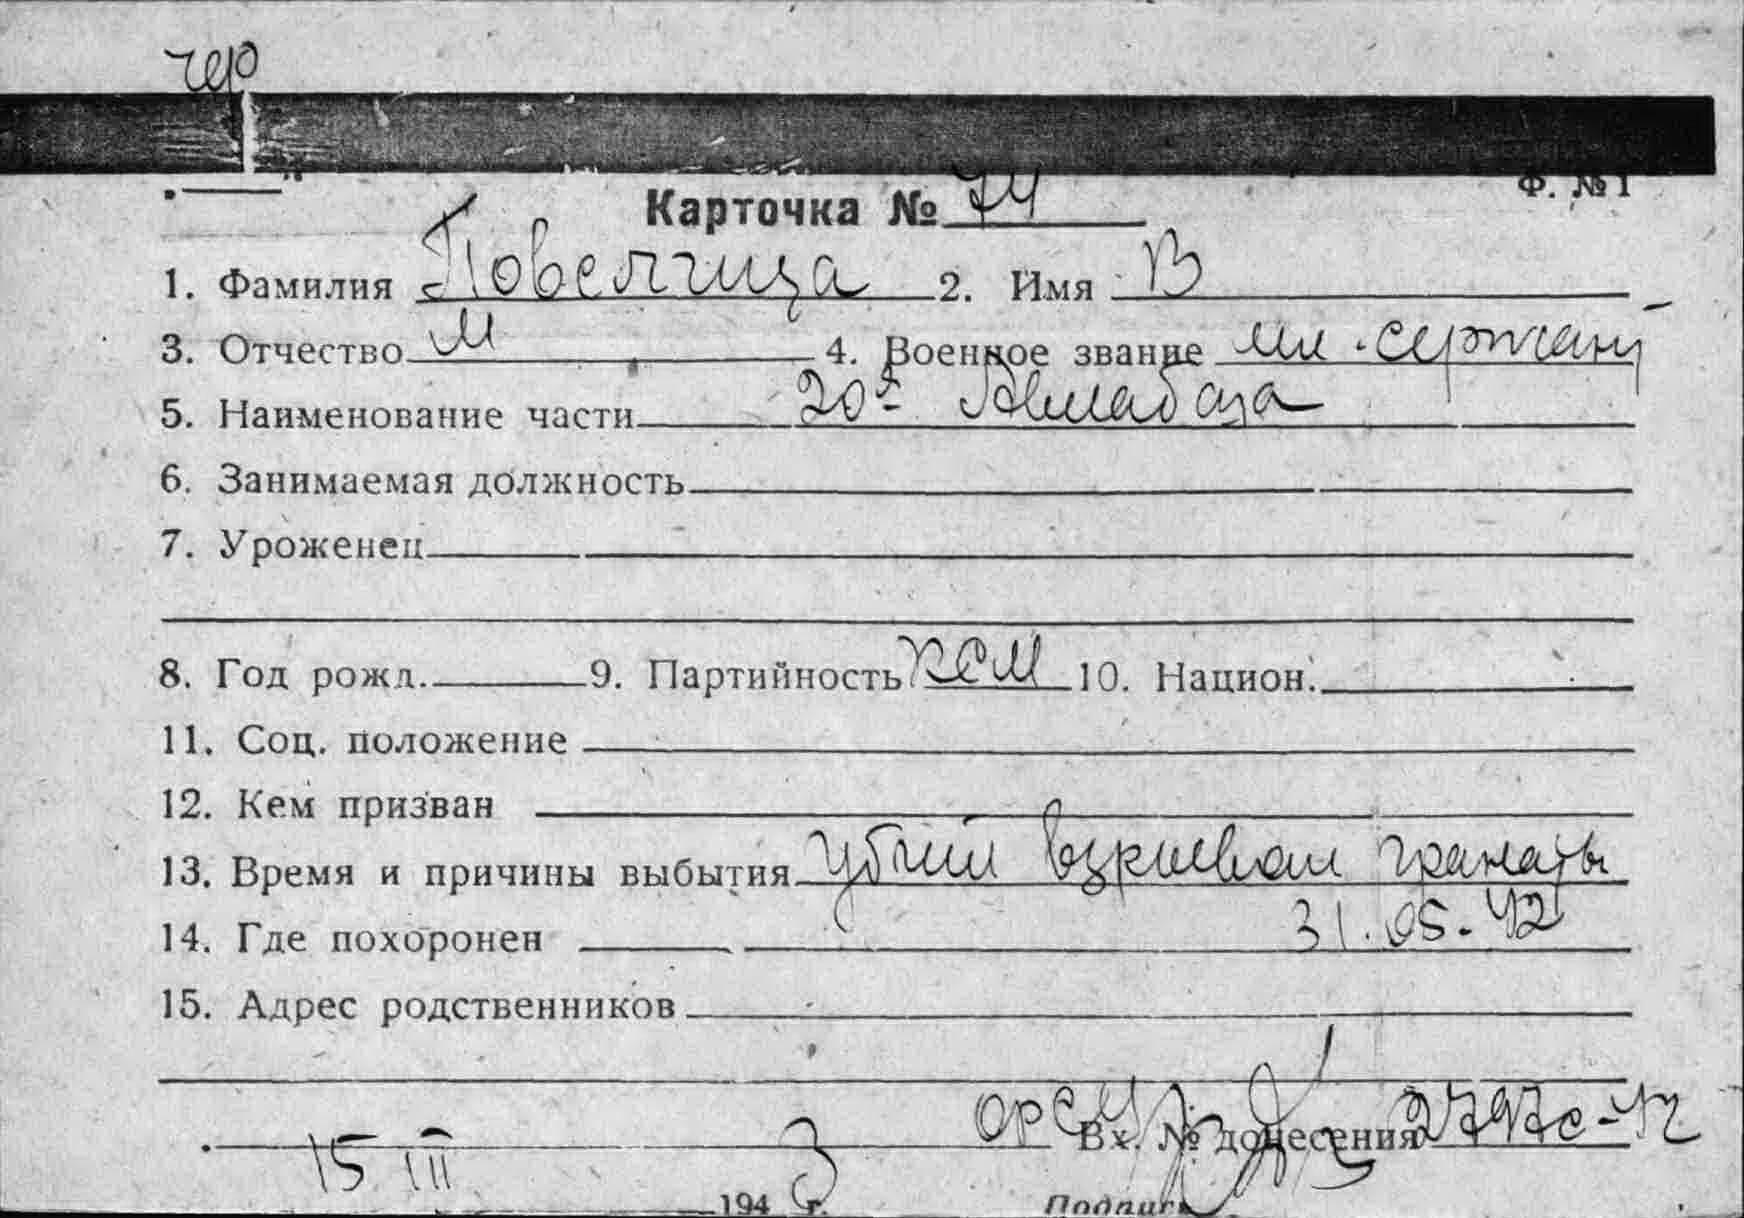 чер
Ф. №1
Карточка № 74
1. Фамилия Повелгица 2. Имя В
3. Отчество М 4. Военное звание мл. сержант
5. Наименование части 20я Авиабаза
6. Занимаемая должность
7. Уроженец
8. Год рожд. 9. Партийность КСМ 10. Национ.
11. Соц. положение
12. Кем призван
13. Время и причины выбытия убит взрывом гранаты
31.05.42
14. Где похоронен
15. Адрес родственников
Вх. № донесения 2797с-42
15 III 1943 г. Подпись